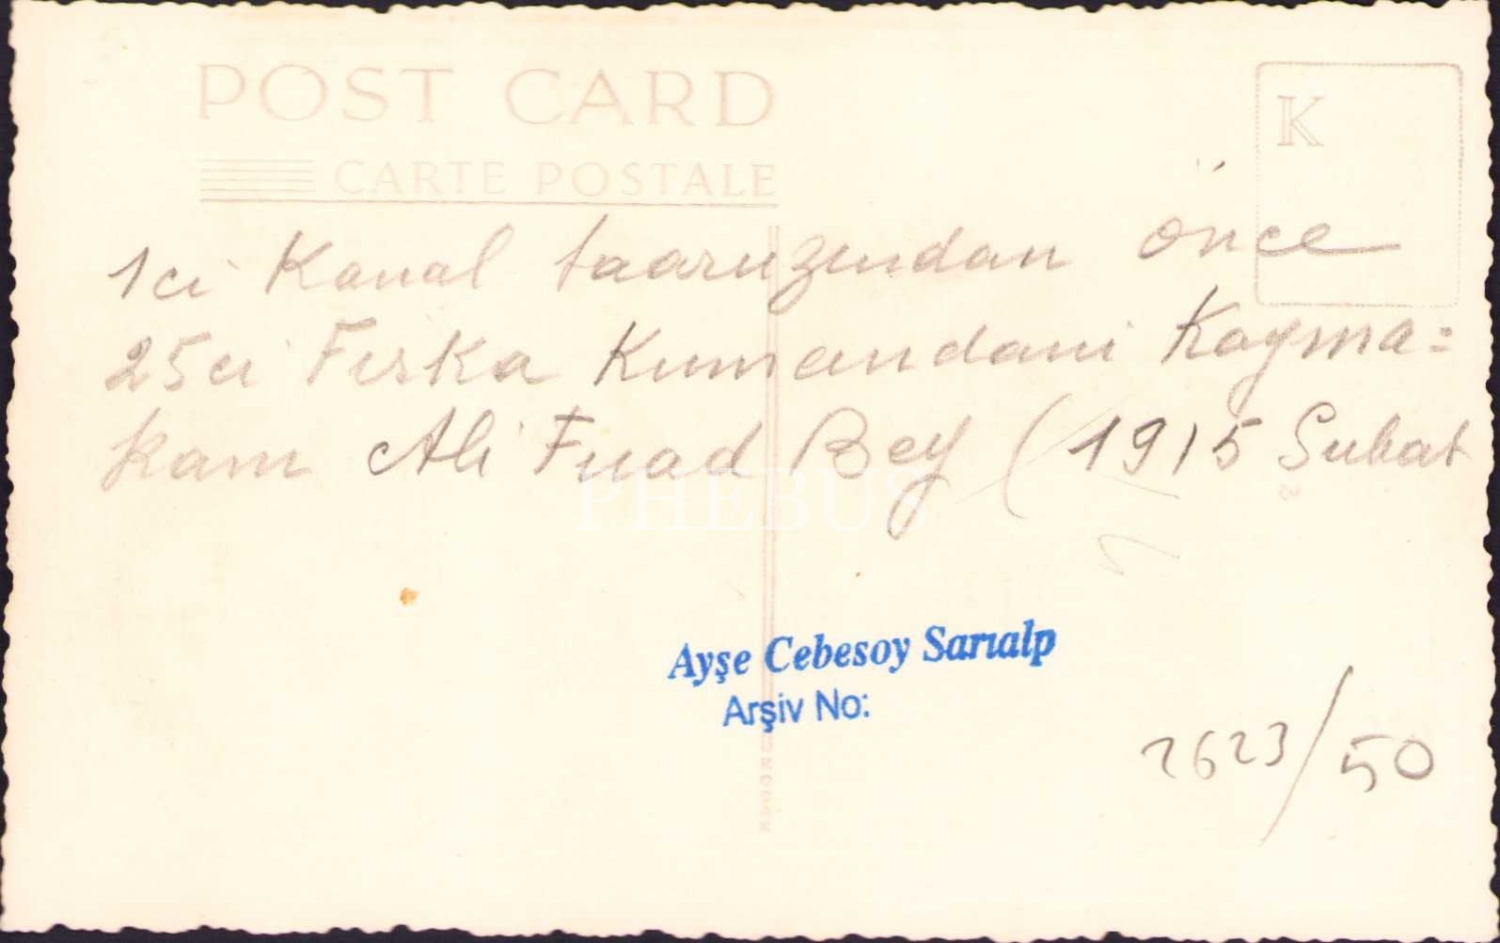 POST CARD
CARTE POSTALE
K
1ci Kanal taaruzundan önce
25ci Fırka Kumandanı Kayma=
kam Ali Fuad Bey (1915 Şubat
PHEBUS
Ayşe Cebesoy Sarıalp
Arşiv No:
2623/50